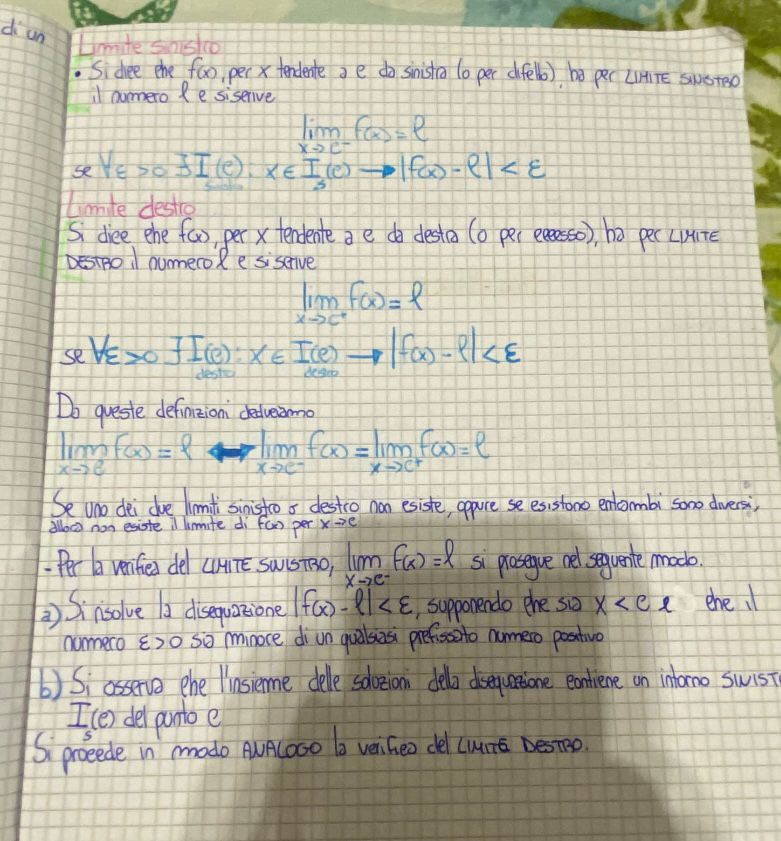 di un
Limite sinistro
• Si dice che f(x), per x tendente a c da sinistra (o per difetto), ha per LIMITE SINISTRO
il nummero l e si scrive
lim f(x) = l
x→c⁻
se ∀ε>0 ∃ I(c): x ∈ I(c) → |f(x) - l| < ε
sinistro s
Limite destro
Si dice che f(x), per x tendente a c da destra (o per eccesso), ha per LIMITE
DESTRO il nummero l e si scrive
lim f(x) = l
x→c⁺
se ∀ε>0 ∃ I(c): x ∈ I(c) → |f(x) - l| < ε
destro destro
Da queste definizioni deduciamo
lim f(x) = l ↔ lim f(x) = lim f(x) = l
x→c x→c⁻ x→c⁺
Se uno dei due limiti sinistro o destro non esiste, oppure se esistono entrambi sono diversi,
allora non esiste il limite di f(x) per x→c
- Per la verifica del LIMITE SINISTRO, lim f(x) = l si prosegue nel seguente modo.
x→c⁻
a) Si risolve la disequazione |f(x) - l| < ε, supponendo che sia x < c e che il
nummero ε>0 sia minore di un qualsiasi prefissato nummero positivo
b) Si osserva che l'insieme delle soluzioni della disequazione contiene un intorno SINIST
I(c) del punto c
s
Si procede in modo ANALOGO la verifica del LIMITE DESTRO.